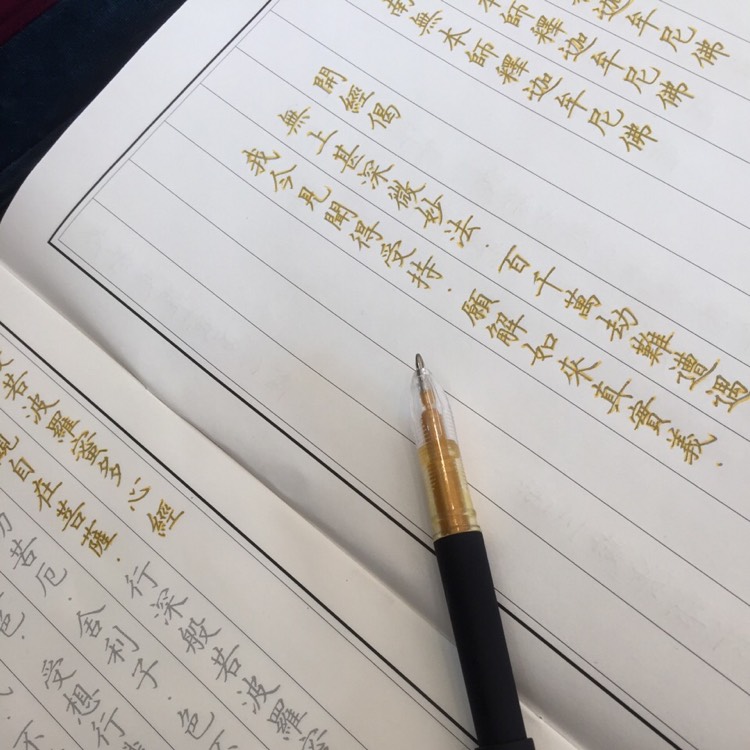 迦牟尼佛
本師釋迦牟尼佛
南無本師釋迦牟尼佛
開經偈
無上甚深微妙法．百千萬劫難遭遇
我今見聞得受持．願解如來真實義．
若波羅蜜多心經
觀自在菩薩．行深般若波羅蜜
苦厄．舍利子．色不
色．受想行
不